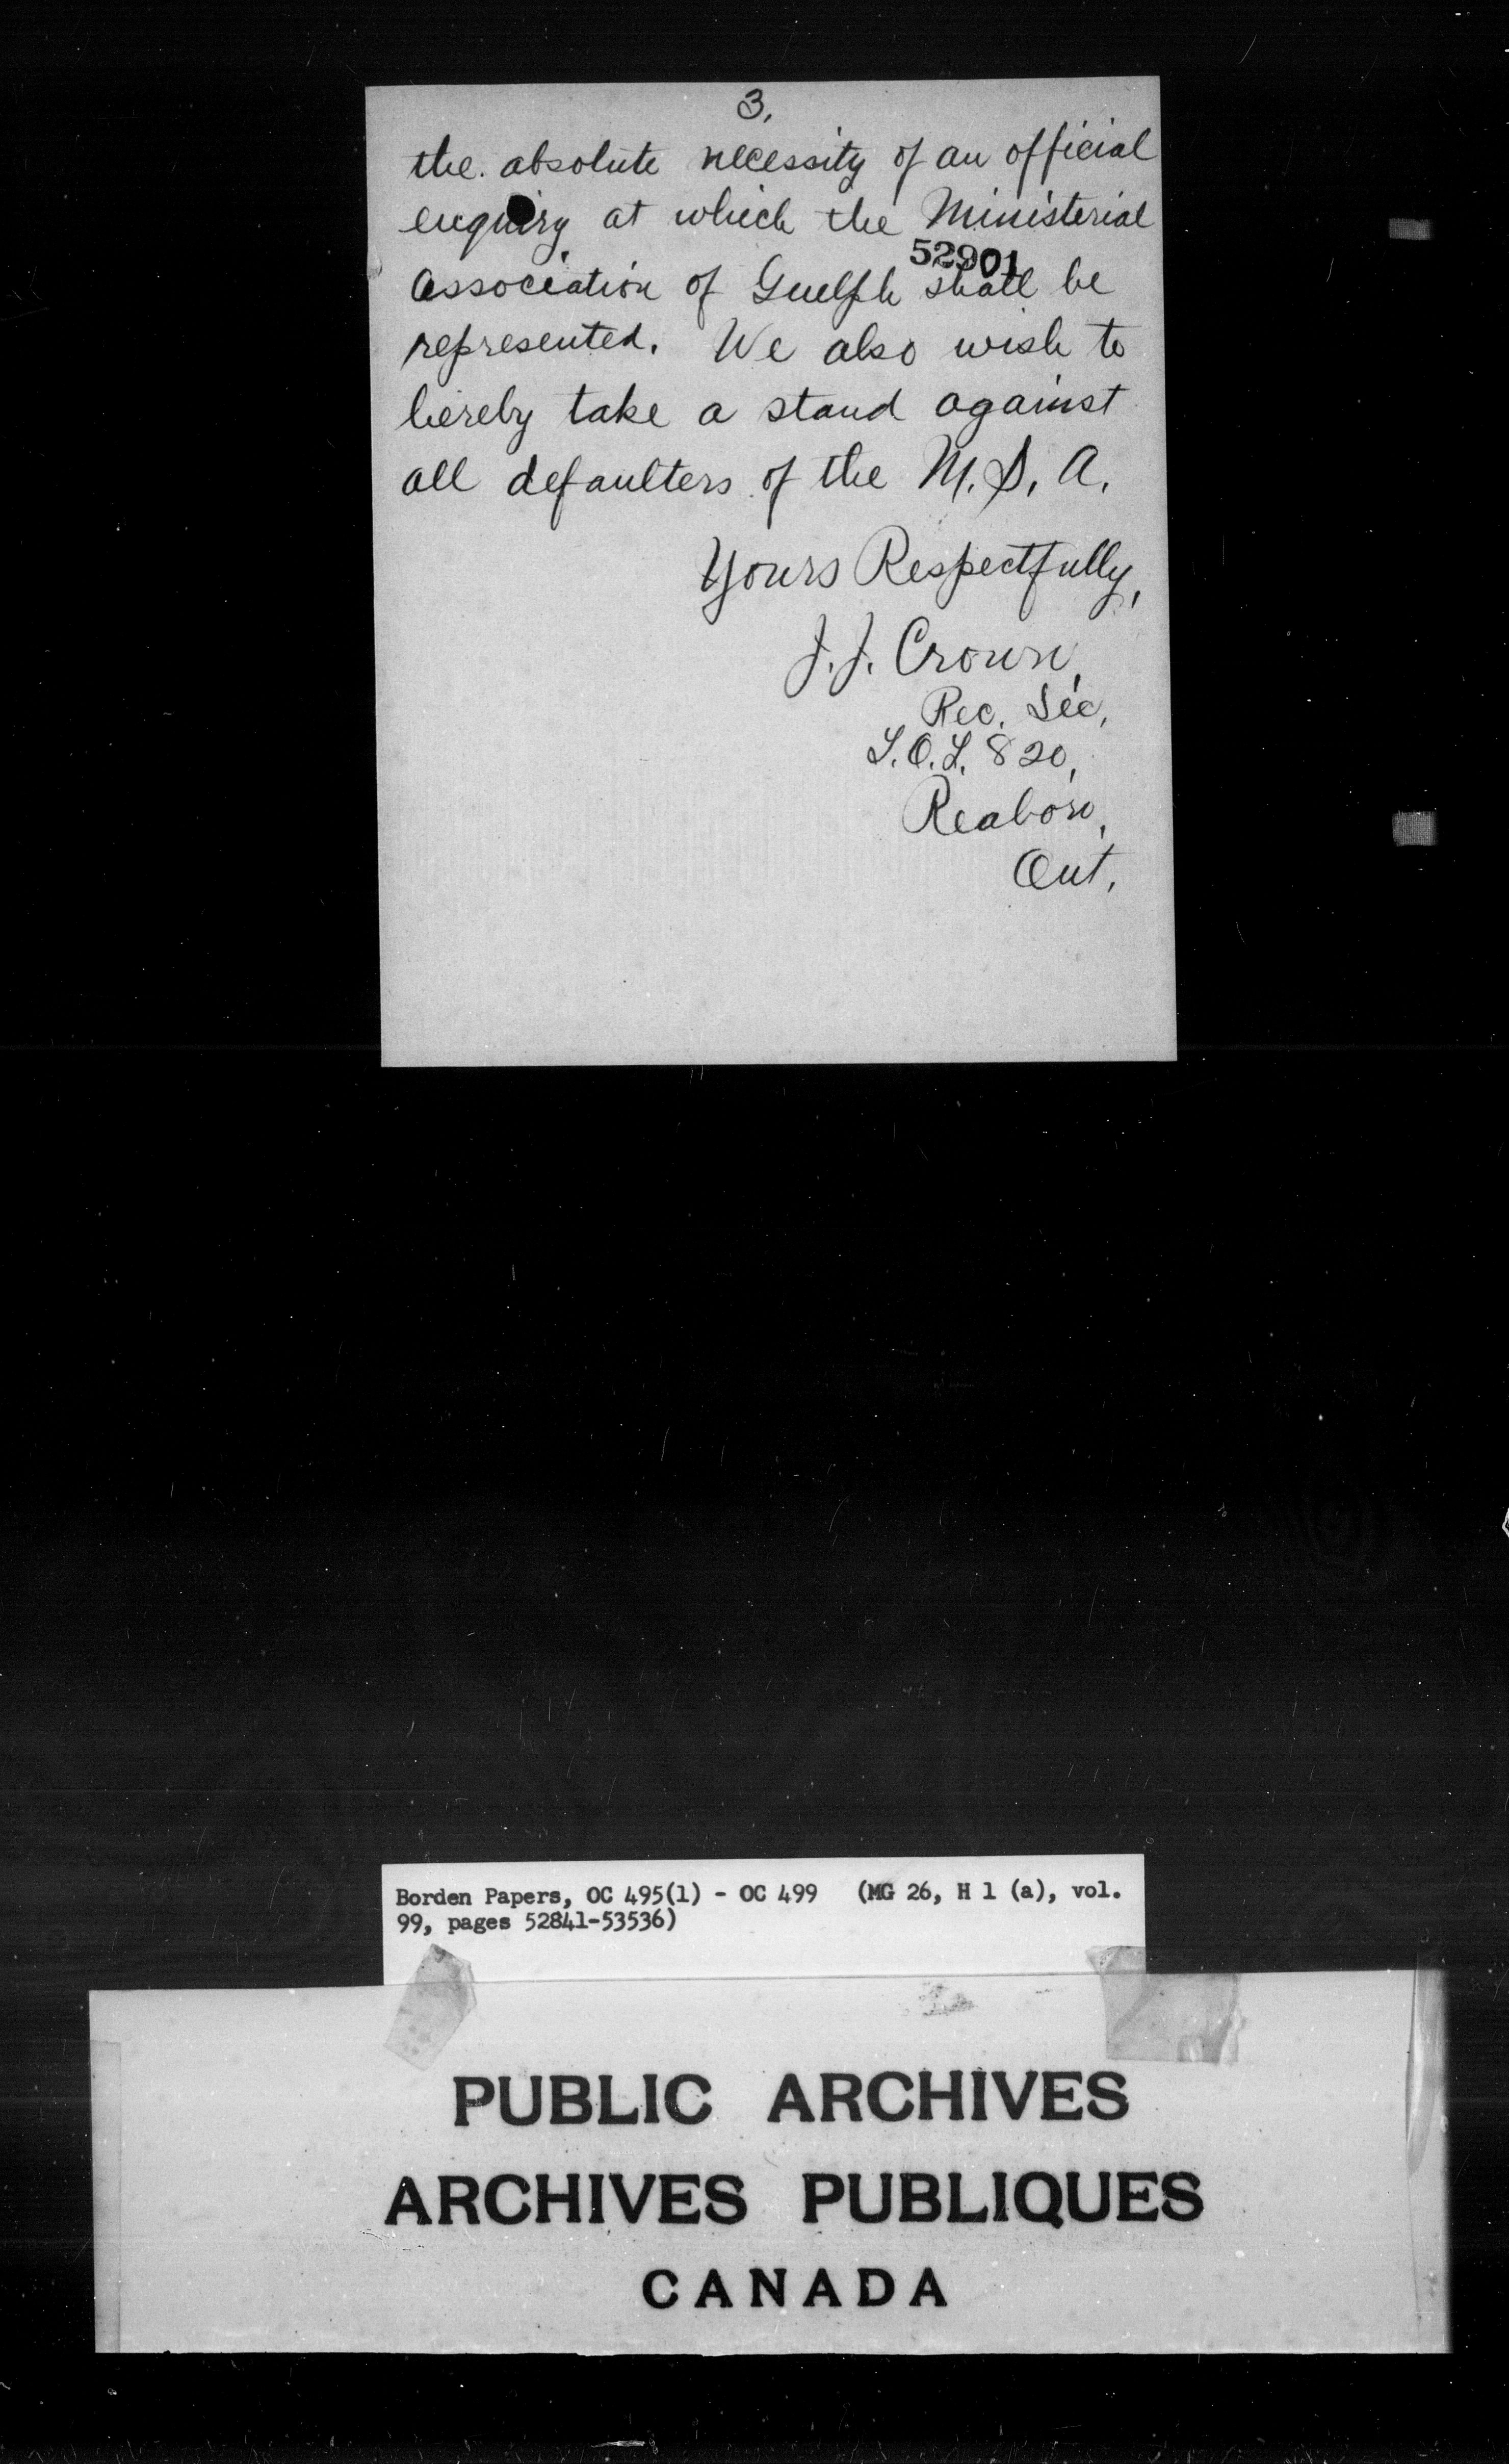 3.
the absolute necessity of an official
enquiry at which the Ministerial
52901
Association of Guelph shall be
represented. We also wish to
hereby take a stand against
all defaulters of the M. S. A.
Yours Respectfully,
J. J. Crown,
Rec. Sec,
L. O. L. 820,
Reabon,
Ont.
Borden Papers, OC 495(1) - OC 499 (MG 26, H 1 (a), vol.
99, pages 52841-53536)
PUBLIC ARCHIVES
ARCHIVES PUBLIQUES
CANADA